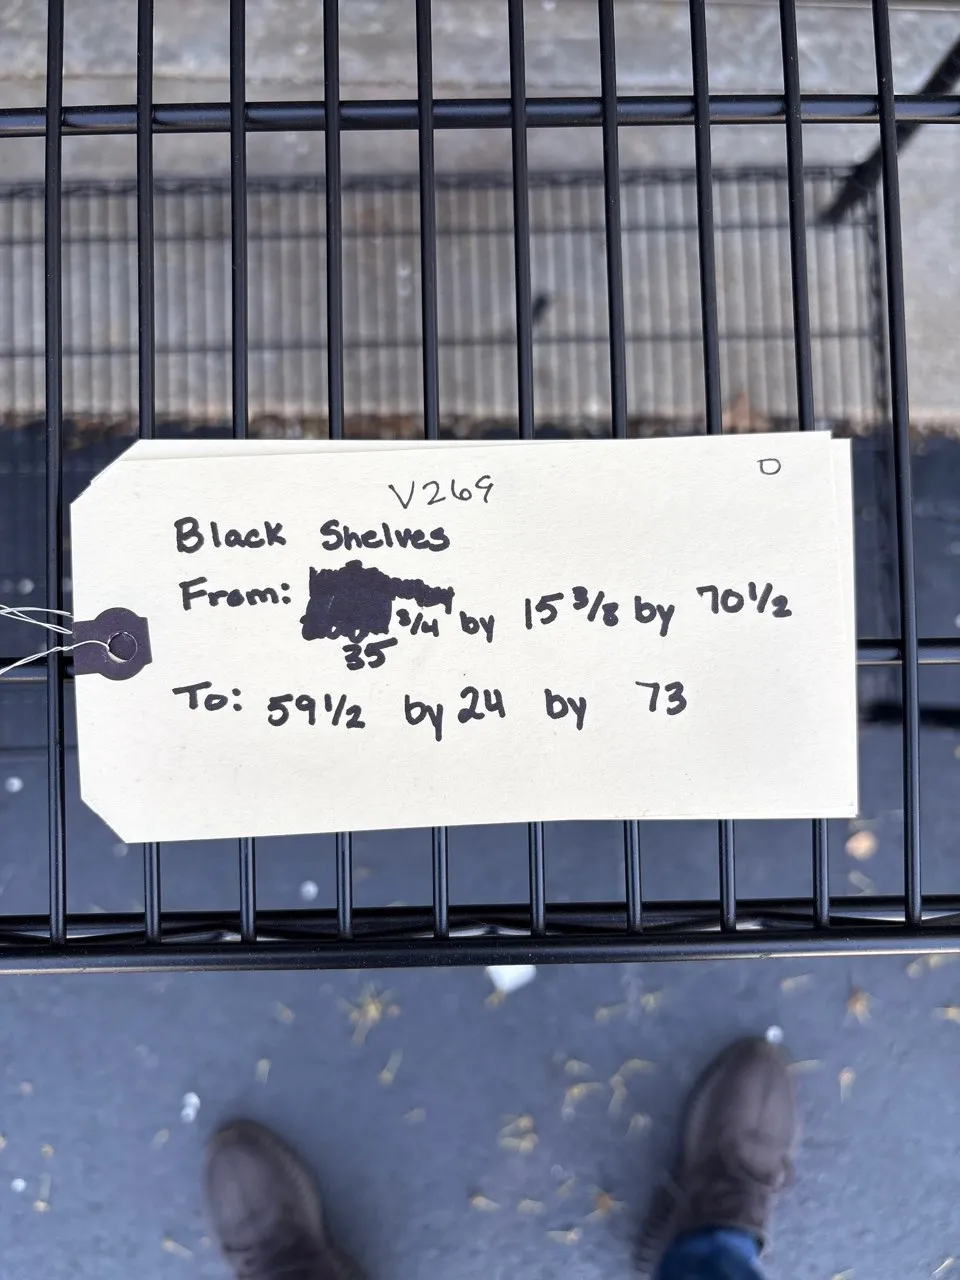 V269
O
Black Shelves
From: 35 3/4 by 15 3/8 by 70 1/2
To: 59 1/2 by 24 by 73